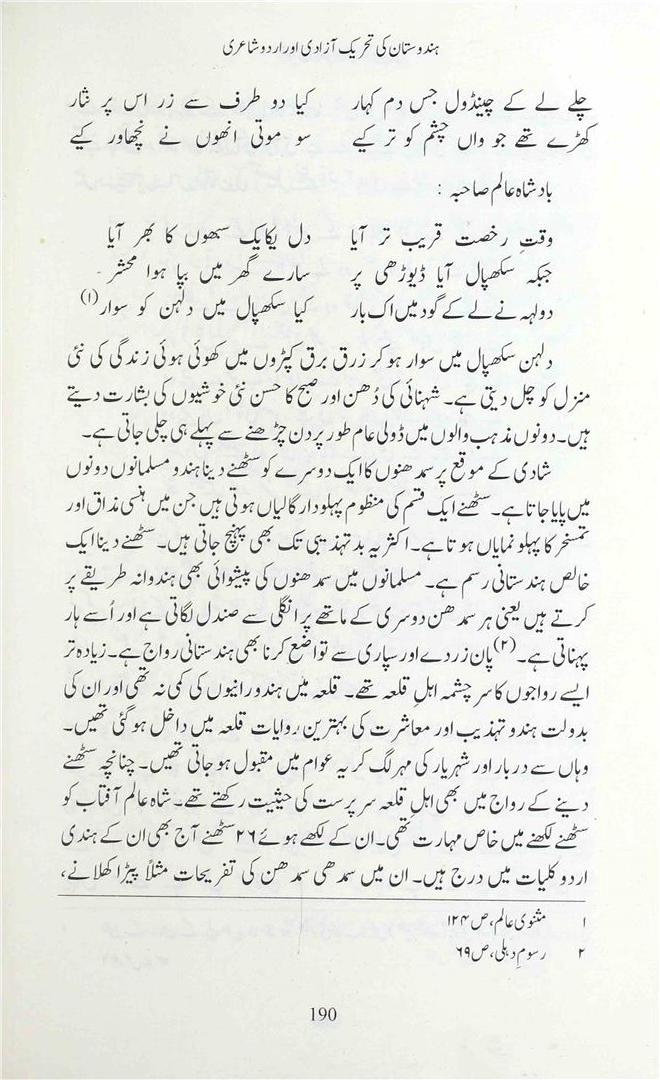 ہندوستان کی تحریک آزادی اور اردو شاعری
چلے لے کے چینڈول جس دم کہار کیا دو طرف سے زر اس پر نثار
کھڑے تھے جو واں چشم کو تر کیے سو موتی انھوں نے نچھاور کیے
بادشاہ عالم صاحبہ :
وقتِ رخصت قریب تر آیا دل یکایک سبھوں کا بھر آیا
جبکہ سکھپال آیا ڈیوڑھی پر سارے گھر میں بپا ہوا محشر
دولہہ نے لے کے گود میں اک بار کیا سکھپال میں دلہن کو سوار(۱)
دلہن سکھپال میں سوار ہو کر زرق برق کپڑوں میں کھوئی ہوئی زندگی کی نئی
منزل کو چل دیتی ہے۔ شہنائی کی دُھن اور صبح کا حسن نئی خوشیوں کی بشارت دیتے
ہیں۔ دونوں مذہب والوں میں ڈولی عام طور پر دن چڑھنے سے پہلے ہی چلی جاتی ہے۔
شادی کے موقع پر سمدھنوں کا ایک دوسرے کو سٹھنے دینا ہندو مسلمانوں دونوں
میں پایا جاتا ہے۔ سٹھنے ایک قسم کی منظوم پہلودار گالیاں ہوتی ہیں جن میں ہنسی مذاق اور
تمسخر کا پہلو نمایاں ہوتا ہے۔ اکثر یہ بدتہذیبی تک بھی پہنچ جاتی ہیں۔ سٹھنے دینا ایک
خالص ہندستانی رسم ہے۔ مسلمانوں میں سمدھنوں کی پیشوائی بھی ہندوانہ طریقے پر
کرتے ہیں یعنی ہر سمدھن دوسری کے ماتھے پر انگلی سے صندل لگاتی ہے اور اُسے ہار
پہناتی ہے۔(۲) پان زردے اور سپاری سے تواضع کرنا بھی ہندستانی رواج ہے۔ زیادہ تر
ایسے رواجوں کا سر چشمہ اہلِ قلعہ تھے۔ قلعہ میں ہندو رانیوں کی کمی نہ تھی اور ان کی
بدولت ہندو تہذیب اور معاشرت کی بہترین روایات قلعہ میں داخل ہو گئی تھیں۔
وہاں سے دربار اور شہریار کی مہر لگ کر یہ عوام میں مقبول ہو جاتی تھیں۔ چنانچہ سٹھنے
دینے کے رواج میں بھی اہلِ قلعہ سرپرست کی حیثیت رکھتے تھے۔ شاہ عالم آفتاب کو
سٹھنے لکھنے میں خاص مہارت تھی۔ ان کے لکھے ہوئے ۲۶ سٹھنے آج بھی ان کے ہندی
اردو کلیات میں درج ہیں۔ ان میں سمدھی سمدھن کی تفریحات مثلاً پیڑا کھلانے،
۱ مثنوی عالم، ص ۱۲۴
۲ رسومِ دہلی، ص ۶۹
190